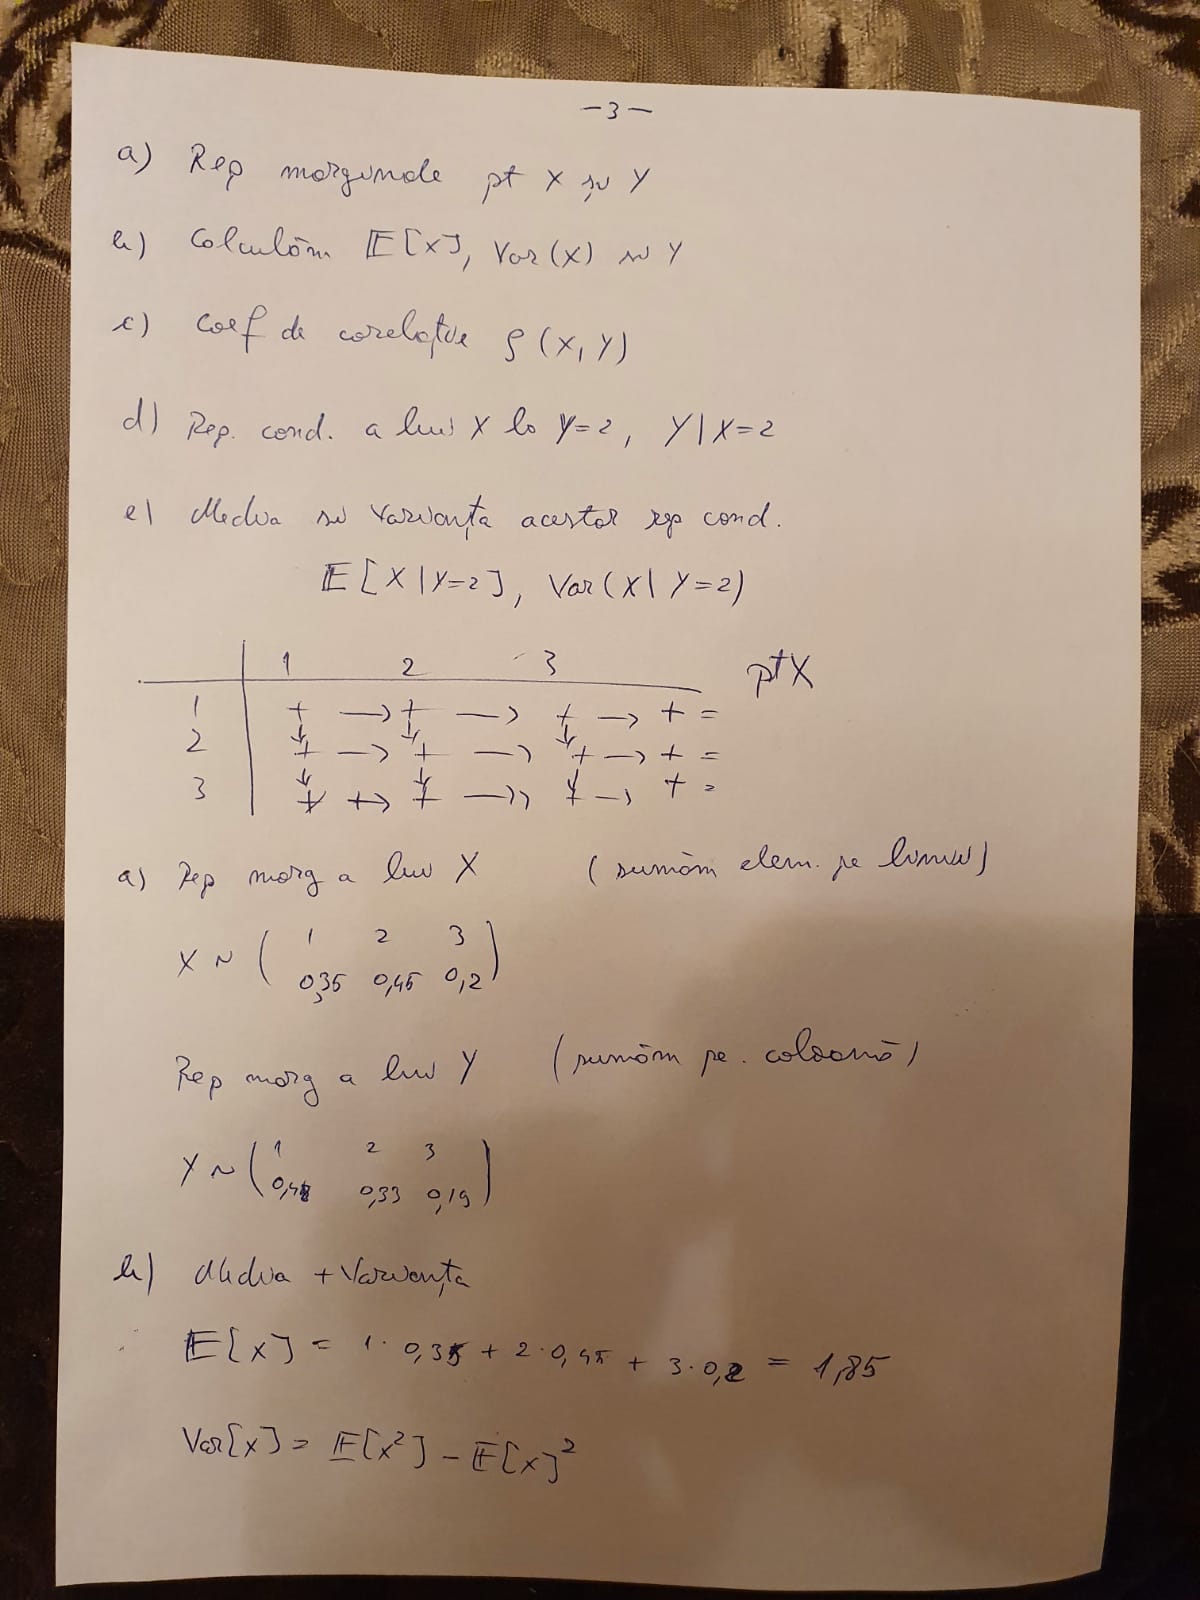 -3-
a) Rep marginale pt X și Y
b) Calculăm E[X], Var(X) și Y
c) Coef de corelație ρ(X,Y)
d) Rep. cond. a lui X la Y=2, Y|X=2
e) Media și Varianța acestor rep cond.
E[X|Y=2], Var(X|Y=2)
1 2 3 pt X
1 + → + → + → + =
↓ ↓ ↓
2 + → + → + → + =
↓ ↓ ↓
3 + → + → + → + =
a) Rep marg a lui X (sumăm elem. pe linii)
X ~ ( 1 2 3
0,35 0,45 0,2 )
Rep marg a lui Y (sumăm pe. coloană)
Y ~ ( 1 2 3
0,48 0,33 0,19 )
b) Media + Varianța
E[X] = 1·0,35 + 2·0,45 + 3·0,2 = 1,85
Var[X] = E[X²] - E[X]²